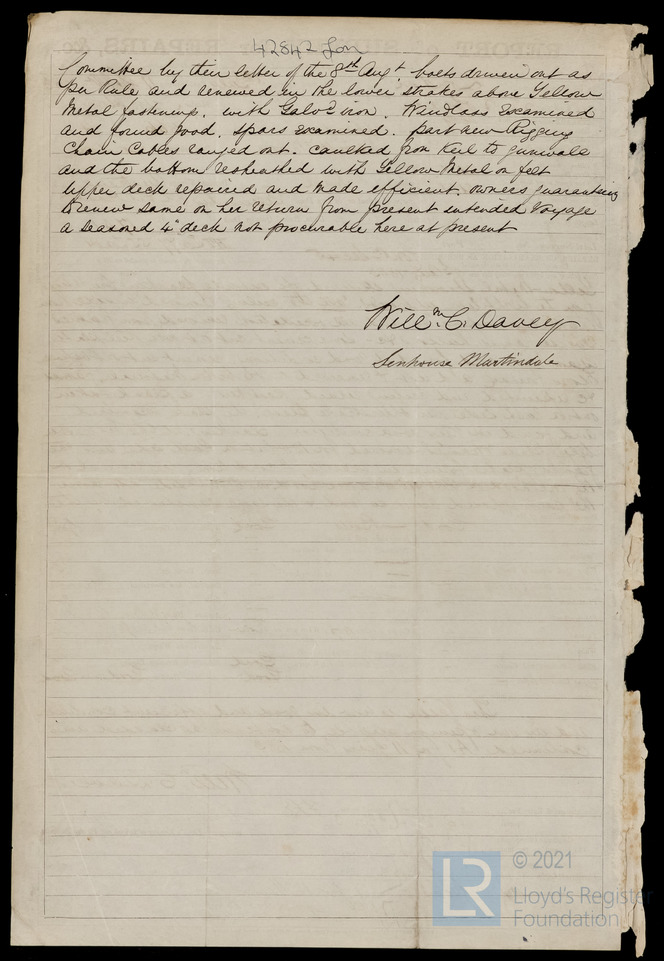 42842 Lon
Committee by their letter of the 8th Augt. bolts driven out as
per Rule and renewed in the lower strakes above Yellow
Metal fastening. with Galvd iron. Windlass Examined
and found good. Spars examined. part new Rigging
Chain Cables ranged out. caulked from Keel to gunwale
and the bottom resheathed with Yellow Metal on felt
upper deck repaired and made efficient, owners guaranteeing
to renew same on her return from present intended Voyage
a seasoned 4" deck not procurable here at present
Willm. C. Davey
Senhouse Martindale
LR
© 2021
Lloyd's Register
Foundation